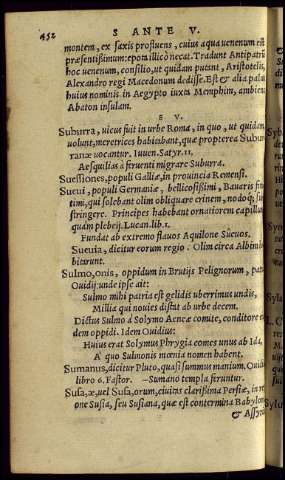 452 S ANTE V.
montem, ex saxis profluens, cuius aqua uenenum est
præsentißimum: epota illicò necat. Tradunt Antipatrũ
hoc uenenum, consilio, ut quidam putant, Aristotelis,
Alexandro regi Macedonum dedisse. Est & alia palus
huius nominis in Aegypto iuxta Memphim, ambiens
Abaton insulam.
S V.
Suburra, uicus fuit in urbe Roma, in quo, ut quidam
uolunt, meretrices habitabant, quæ propterea Subur
ranæ uocantur. Iuuen. Satyr. 11.
Aesquilias à feruenti migrare Suburra.
Suessiones, populi Galliæ, in prouincia Remensi.
Sueui, populi Germaniæ, bellicosißimi, Bauaris fini
timi, qui solebant olim obliquare crinem, nodoq;
stringere. Principes habebant ornatiorem capillum
quàm plebeij. Lucan. lib. 1.
Fundat ab extremo flauos Aquilone Sueuos.
Sueuia, dicitur eorum regio. Olim circa Albim ha
bitarunt.
Sulmo, onis, oppidum in Brutijs Pelignorum,
Ouidij: unde ipse ait:
Sulmo mihi patria est gelidis uberrimus undis,
Millia qui nouies distat ab urbe decem.
Dictus Sulmo à Solymo Aeneæ comite, conditore
dem oppidi. Idem Ouidius:
Huius erat Solymus Phrygia comes unus ab Ida,
A' quo Sulmonis mœnia nomen habent.
Sumanus, dicitur Pluto, quasi summus manium. Ouid.
libro 6. Fastor. —Sumano templa feruntur.
Susa, æ, uel Susa, orum, ciuitas clarißima Persiæ, in
one Susia, seu Susiana, quæ est contermina Babylon
& Assyr